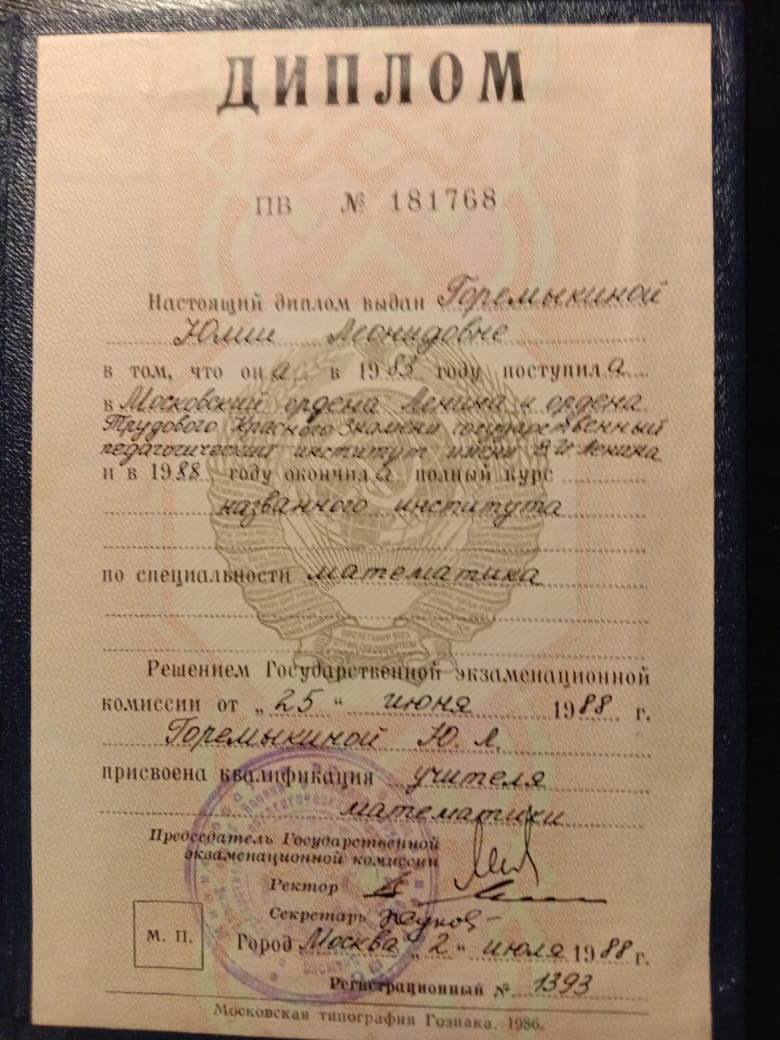 ДИПЛОМ
ПВ № 181768
Настоящий диплом выдан Горемыкиной
Юлии Леонидовне
в том, что она в 1983 году поступила
в Московский ордена Ленина и ордена
Трудового Красного Знамени государственный
педагогический институт имени В И Ленина
и в 1988 году окончила полный курс
названного института
по специальности математика
Решением Государственной экзаменационной
комиссии от „25“ июня 1988 г.
Горемыкиной Ю. Л.
присвоена квалификация учителя
математики
Председатель Государственной
экзаменационной комиссии
Ректор
Секретарь
М. П.
Город Москва „2“ июля 1988 г.
Регистрационный № 1393
Московская типография Гознака. 1986.